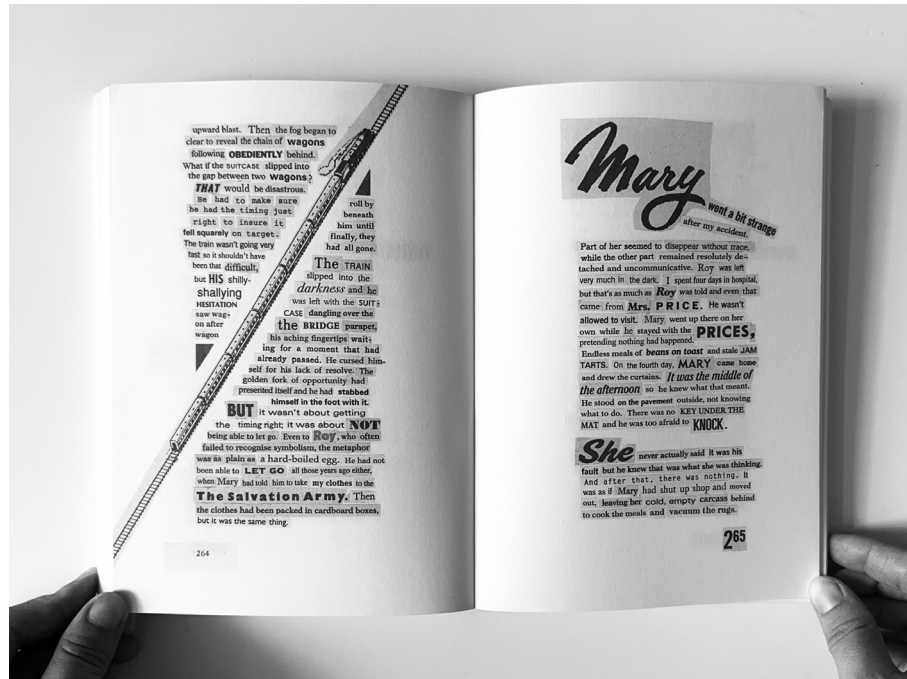 upward blast. Then the fog began to
clear to reveal the chain of wagons
following OBEDIENTLY behind.
What if the SUITCASE slipped into
the gap between two wagons?
THAT would be disastrous.
He had to make sure
he had the timing just
right to insure it
fell squarely on target.
The train wasn't going very
fast so it shouldn't have
been that difficult,
but HIS shilly-
shallying
HESITATION
saw wag-
on after
wagon
roll by
beneath
him until
finally, they
had all gone.
The TRAIN
slipped into the
darkness and he
was left with the SUIT-
CASE dangling over the
the BRIDGE parapet,
his aching fingertips wait-
ing for a moment that had
already passed. He cursed him-
self for his lack of resolve. The
golden fork of opportunity had
presented itself and he had stabbed
himself in the foot with it.
BUT it wasn't about getting
the timing right; it was about NOT
being able to let go. Even to Roy, who often
failed to recognise symbolism, the metaphor
was as plain as a hard-boiled egg. He had not
been able to LET GO all those years ago either,
when Mary had told him to take my clothes to the
The Salvation Army. Then
the clothes had been packed in cardboard boxes,
but it was the same thing.
264
Mary
went a bit strange
after my accident.
Part of her seemed to disappear without trace,
while the other part remained resolutely de-
tached and uncommunicative. Roy was left
very much in the dark. I spent four days in hospital,
but that's as much as Roy was told and even that
came from Mrs. PRICE. He wasn't
allowed to visit. Mary went up there on her
own while he stayed with the PRICES,
pretending nothing had happened.
Endless meals of beans on toast and stale JAM
TARTS. On the fourth day, MARY came home
and drew the curtains. It was the middle of
the afternoon so he knew what that meant.
He stood on the pavement outside, not knowing
what to do. There was no KEY UNDER THE
MAT and he was too afraid to KNOCK.
She never actually said it was his
fault but he knew that was what she was thinking.
And after that, there was nothing. It
was as if Mary had shut up shop and moved
out, leaving her cold, empty carcass behind
to cook the meals and vacuum the rugs.
265